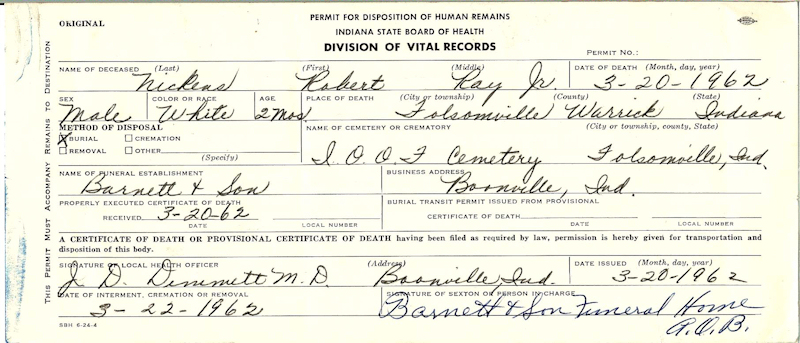 ORIGINAL
PERMIT FOR DISPOSITION OF HUMAN REMAINS
INDIANA STATE BOARD OF HEALTH
DIVISION OF VITAL RECORDS
PERMIT NO.:
THIS PERMIT MUST ACCOMPANY REMAINS TO DESTINATION
NAME OF DECEASED (Last) (First) (Middle) DATE OF DEATH (Month, day, year)
Nickens Robert Ray Jr. 3-20-1962
SEX COLOR OR RACE AGE PLACE OF DEATH (City or township) (County) (State)
Male White 2 Mos Folsomville Warrick Indiana
METHOD OF DISPOSAL NAME OF CEMETERY OR CREMATORY (City or township, county, State)
X BURIAL CREMATION
REMOVAL OTHER
(Specify)
I.O.O.F Cemetery Folsomville, Ind.
NAME OF FUNERAL ESTABLISHMENT BUSINESS ADDRESS
Barnett & Son Boonville, Ind.
PROPERLY EXECUTED CERTIFICATE OF DEATH BURIAL TRANSIT PERMIT ISSUED FROM PROVISIONAL
RECEIVED 3-20-62 CERTIFICATE OF DEATH
DATE LOCAL NUMBER DATE LOCAL NUMBER
A CERTIFICATE OF DEATH OR PROVISIONAL CERTIFICATE OF DEATH having been filed as required by law, permission is hereby given for transportation and
disposition of this body.
SIGNATURE OF LOCAL HEALTH OFFICER (Address) DATE ISSUED (Month, day, year)
J. D. Dimmett M.D. Boonville, Ind. 3-20-1962
DATE OF INTERMENT, CREMATION OR REMOVAL SIGNATURE OF SEXTON OR PERSON IN CHARGE
3-22-1962 Barnett & Son Funeral Home
A.O.B.
SBH 6-24-4